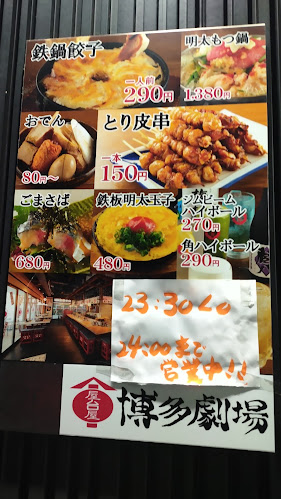 鉄鍋餃子
一人前
290円
明太もつ鍋
1,380円
おでん
80円～
とり皮串
一本
150円
ごまさば
680円
鉄板明太玉子
480円
ジムビーム
ハイボール
270円
角ハイボール
290円
23:30LO
24:00まで
営業中!!
屋台屋
博多劇場